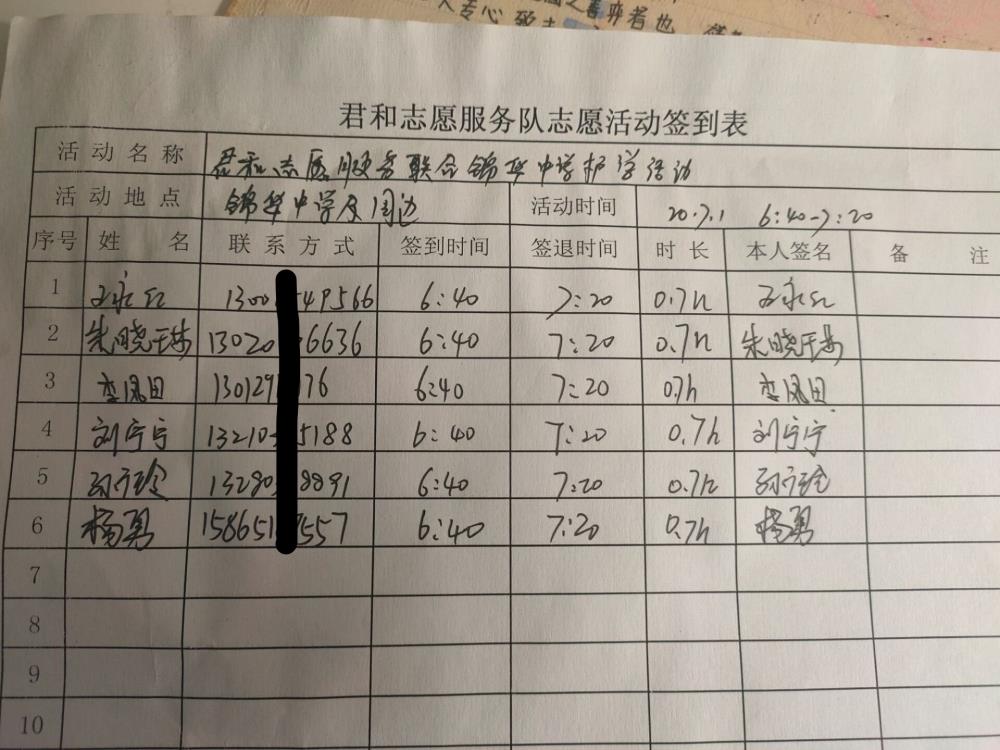 人专心致志
之善弈者也
君和志愿服务队志愿活动签到表
活动名称 君和志愿服务联合锦华中学护学活动
活动地点 锦华中学及周边 活动时间 20.7.1 6:40-7:20
序号 姓名 联系方式 签到时间 签退时间 时长 本人签名 备注
1 王永红 1300 549566 6:40 7:20 0.7h 王永红
2 朱晓玉梅 13020 6636 6:40 7:20 0.7h 朱晓玉梅
3 李凤田 130129 176 6:40 7:20 0.7h 李凤田
4 刘宁宁 13210 5188 6:40 7:20 0.7h 刘宁宁
5 13280 8891 6:40 7:20 0.7h
6 杨勇 158651 7557 6:40 7:20 0.7h 杨勇
7
8
9
10